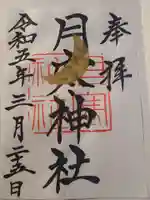 奉拝
月寒神社
令和五年三月二十五日